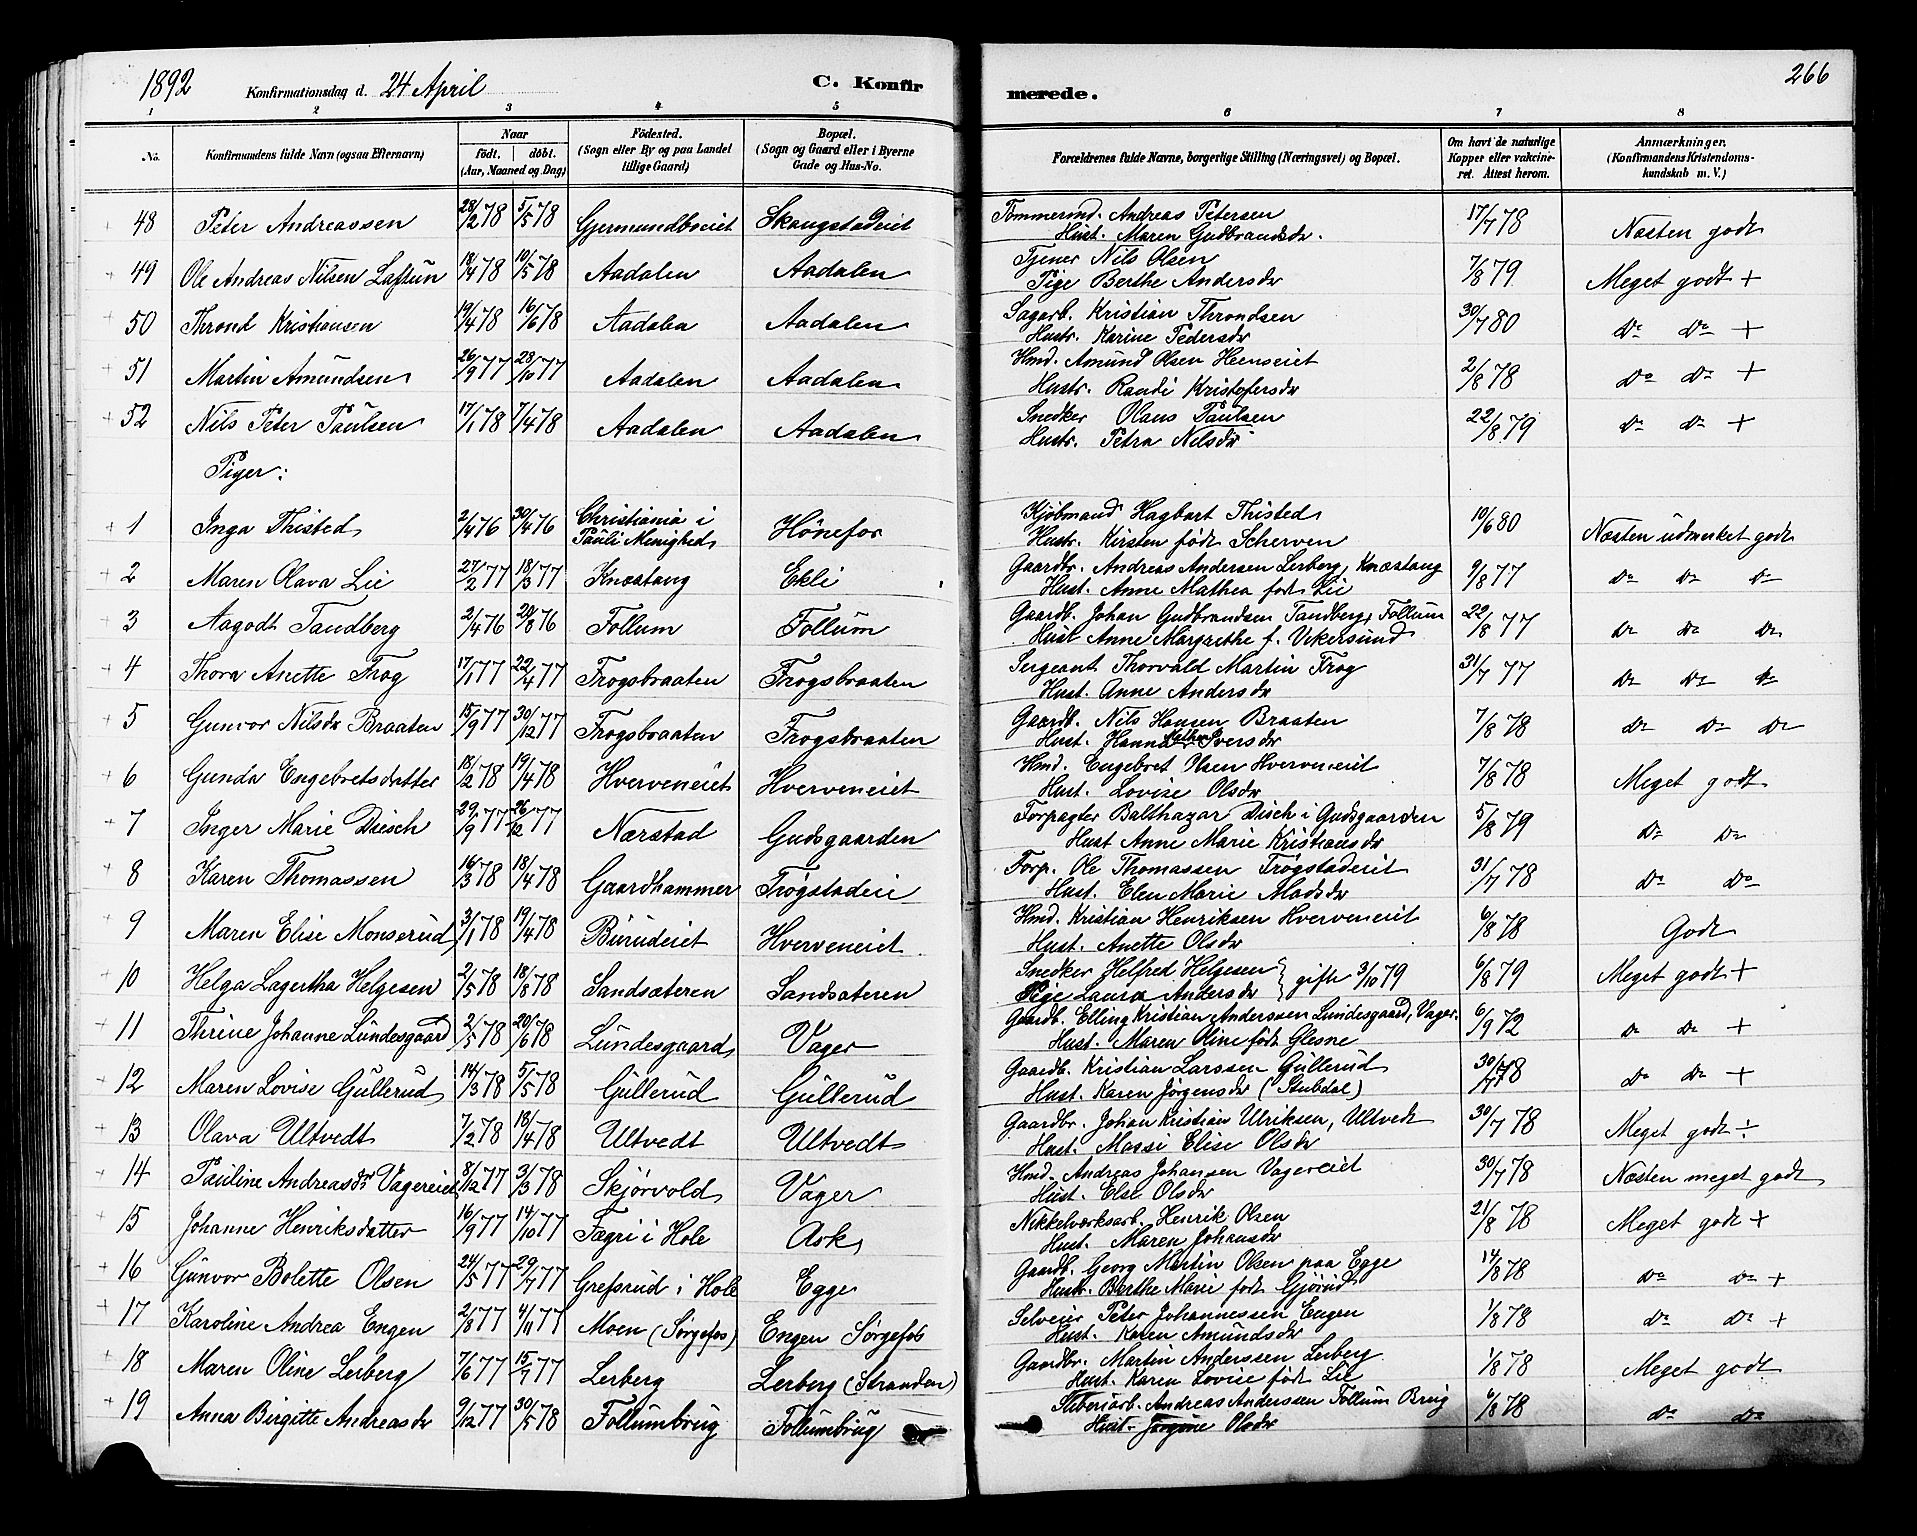 1892 Konfirmationsdag d. 24 April C. Konfirmerede. 266
1 2 3 4 5 6 7 8
No. Konfirmandens fulde Navn (ogsaa Efternavn) Naar født. døbt. (Aar, Maaned og Dag) Fødested. (Sogn eller By og paa Landet tillige Gaard) Bopæl. (Sogn og Gaard eller i Byerne Gade og Hus-No. Forældrenes fulde Navne, borgerlige Stilling (Næringsvei) og Bopæl. Om havt de naturlige Kopper eller vakcineret. Attest herom. Anmærkninger. (Konfirmandens Kristendomskundskab m. V.)
48 Peter Andreassen 28/2 78 5/5 78 Gjermundboeiet Skaugstadeiet Tømmermd. Andreas Petersen 17/7 78 Næsten godt
Hust. Maren Gudbrandsdr.
49 Ole Andreas Nilsen 18/4 78 10/5 78 Aadalen Aadalen Tjener Nils Olsen 7/8 79 Meget godt +
Pige Berthe Andersdr
50 Thrond Kristiansen 19/4 78 16/6 78 Aadalen Aadalen Sagarb. Kristian Throndsen 30/7 80 Do Do +
Hustr. Karine Pedersdr
51 Martin Amundsen 26/9 77 28/10 77 Aadalen Aadalen Hmd. Amund Olsen Heenseiet 2/8 78 Do Do +
Hustr. Randi Kristofersdr
52 Nils Peter Paulsen 17/1 78 7/4 78 Aadalen Aadalen Snedker Olaus Paulsen 22/8 79 Do Do +
Hustr. Petra Nilsdr
Piger:
1 Inga Thisted 2/4 76 30/4 76 Christiania i Pauli Menighed Hønefos Kjøbmand Hagbart Thisted 10/6 80 Næsten udmerket godt
Hustr. Kirsten født Scherven
2 Maren Olava Lie 27/2 77 18/3 77 Knæstang Ekli Gaardbr. Andreas Andersen Lerberg, Knæstang 9/8 77 Do Do Do
Hust. Anne Mathea født Lie
3 Aagodt Tandberg 2/4 76 20/8 76 Follum Follum Gaardb. Johan Gudbrandsen Tandberg, Follum 22/8 77 Do Do Do
Hust Anne Margrethe f. Vikersund
4 Thora Anette Frog 17/1 77 22/4 77 Frogsbraaten Frogsbraaten Sergeant Thorvald Martin Frog 31/7 77 Do Do Do
Hust. Anne Andersdr
5 Gunvor Nilsdr Braaten 15/9 77 30/12 77 Frogsbraaten Frogsbraaten Gaardb. Nils Hansen Braaten 7/8 78 Do Do Do
Hust. Hanna Iversdr
6 Gunda Engebretsdatter 18/2 78 19/4 78 Hverveneiet Hverveneiet Hmd. Engebret Olsen Hverveneiet 7/8 78 Meget godt
Hust. Lovise Olsdr
7 Inger Marie Disch 29/9 77 26/12 77 Nærstad Gudsgaarden Forpagter Balthazar Disch i Gudsgaarden 5/8 79 Do Do
Hust Anne Marie Kristiansdr
8 Karen Thomassen 16/3 78 18/4 78 Gaardhammer Trøgstadeie Forp. Ole Thomassen Trøgstadeiet 31/7 78 Do Do
Hust. Elen Marie Madsdr
9 Maren Elise Monserud 3/1 78 19/4 78 Burudeiet Hverveneiet Hmd. Kristian Henriksen Hverveneiet 6/8 78 Godt
Hust. Anette Olsdr
10 Helga Lagertha Helgesen 2/5 78 18/8 78 Sandsæteren Sandsæteren Snedker Helfred Helgesen } gifte 3/10 79 6/8 79 Meget godt +
Pige Laura Andersdr
11 Thrine Johanne Lundesgaard 2/5 78 20/6 78 Lundesgaard Vager Gaardb. Elling Kristian Anderssen Lundesgaard, Vager. 6/9 72 Do Do +
Hust. Maren Oline født Glesne
12 Maren Lovise Gullerud 14/3 78 5/5 78 Gullerud Gullerud Gaardb. Kristian Larssen Gullerud 30/7 78 Do Do +
Hust. Karen Jørgensdr (Stubdal)
13 Olava Ultvedt 7/2 78 18/4 78 Ultvedt Ultvedt Gaardbr. Johan Kristian Ulriksen, Ultvedt 30/7 78 Meget godt ÷
Hust. Massi Elise Olsdr
14 Pauline Andreasdr Vagereiet 8/12 77 3/3 78 Skjørvold Vager Hmd. Andreas Johansen Vagereiet 30/7 78 Næsten meget godt
Hust. Else Olsdr
15 Johanne Henriksdatter 16/9 77 14/10 77 Fægri i Hole Ask Nikkelværksarb. Henrik Olsen 21/8 78 Meget godt +
Hust. Maren Johansdr
16 Gunvor Bolette Olsen 24/5 77 29/7 77 Grefsrud i Hole Egge Gaardb. Georg Martin Olsen paa Egge 14/8 78 Do Do +
Hustr. Berthe Marie født Gjørud
17 Karoline Andrea Engen 2/8 77 4/11 77 Moen (Sørgefos) Engen Sørgefos Selveier Peter Johannessen Engen 1/8 78 Do Do +
Hust. Karen Amundsdr
18 Maren Oline Lerberg 7/6 77 15/7 77 Lerberg Lerberg (Stranden) Gaardbr. Martin Anderssen Lerberg 1/8 78 Meget godt
Hust. Karen Lovise født Lie
19 Anna Birgitte Andreasdr 9/12 77 30/5 78 Follumbrug Follumbrug Sliberiarb. Andreas Anderssen Follum Brug 6/8 78 Do Do
Hust. Jørgine Olsdr